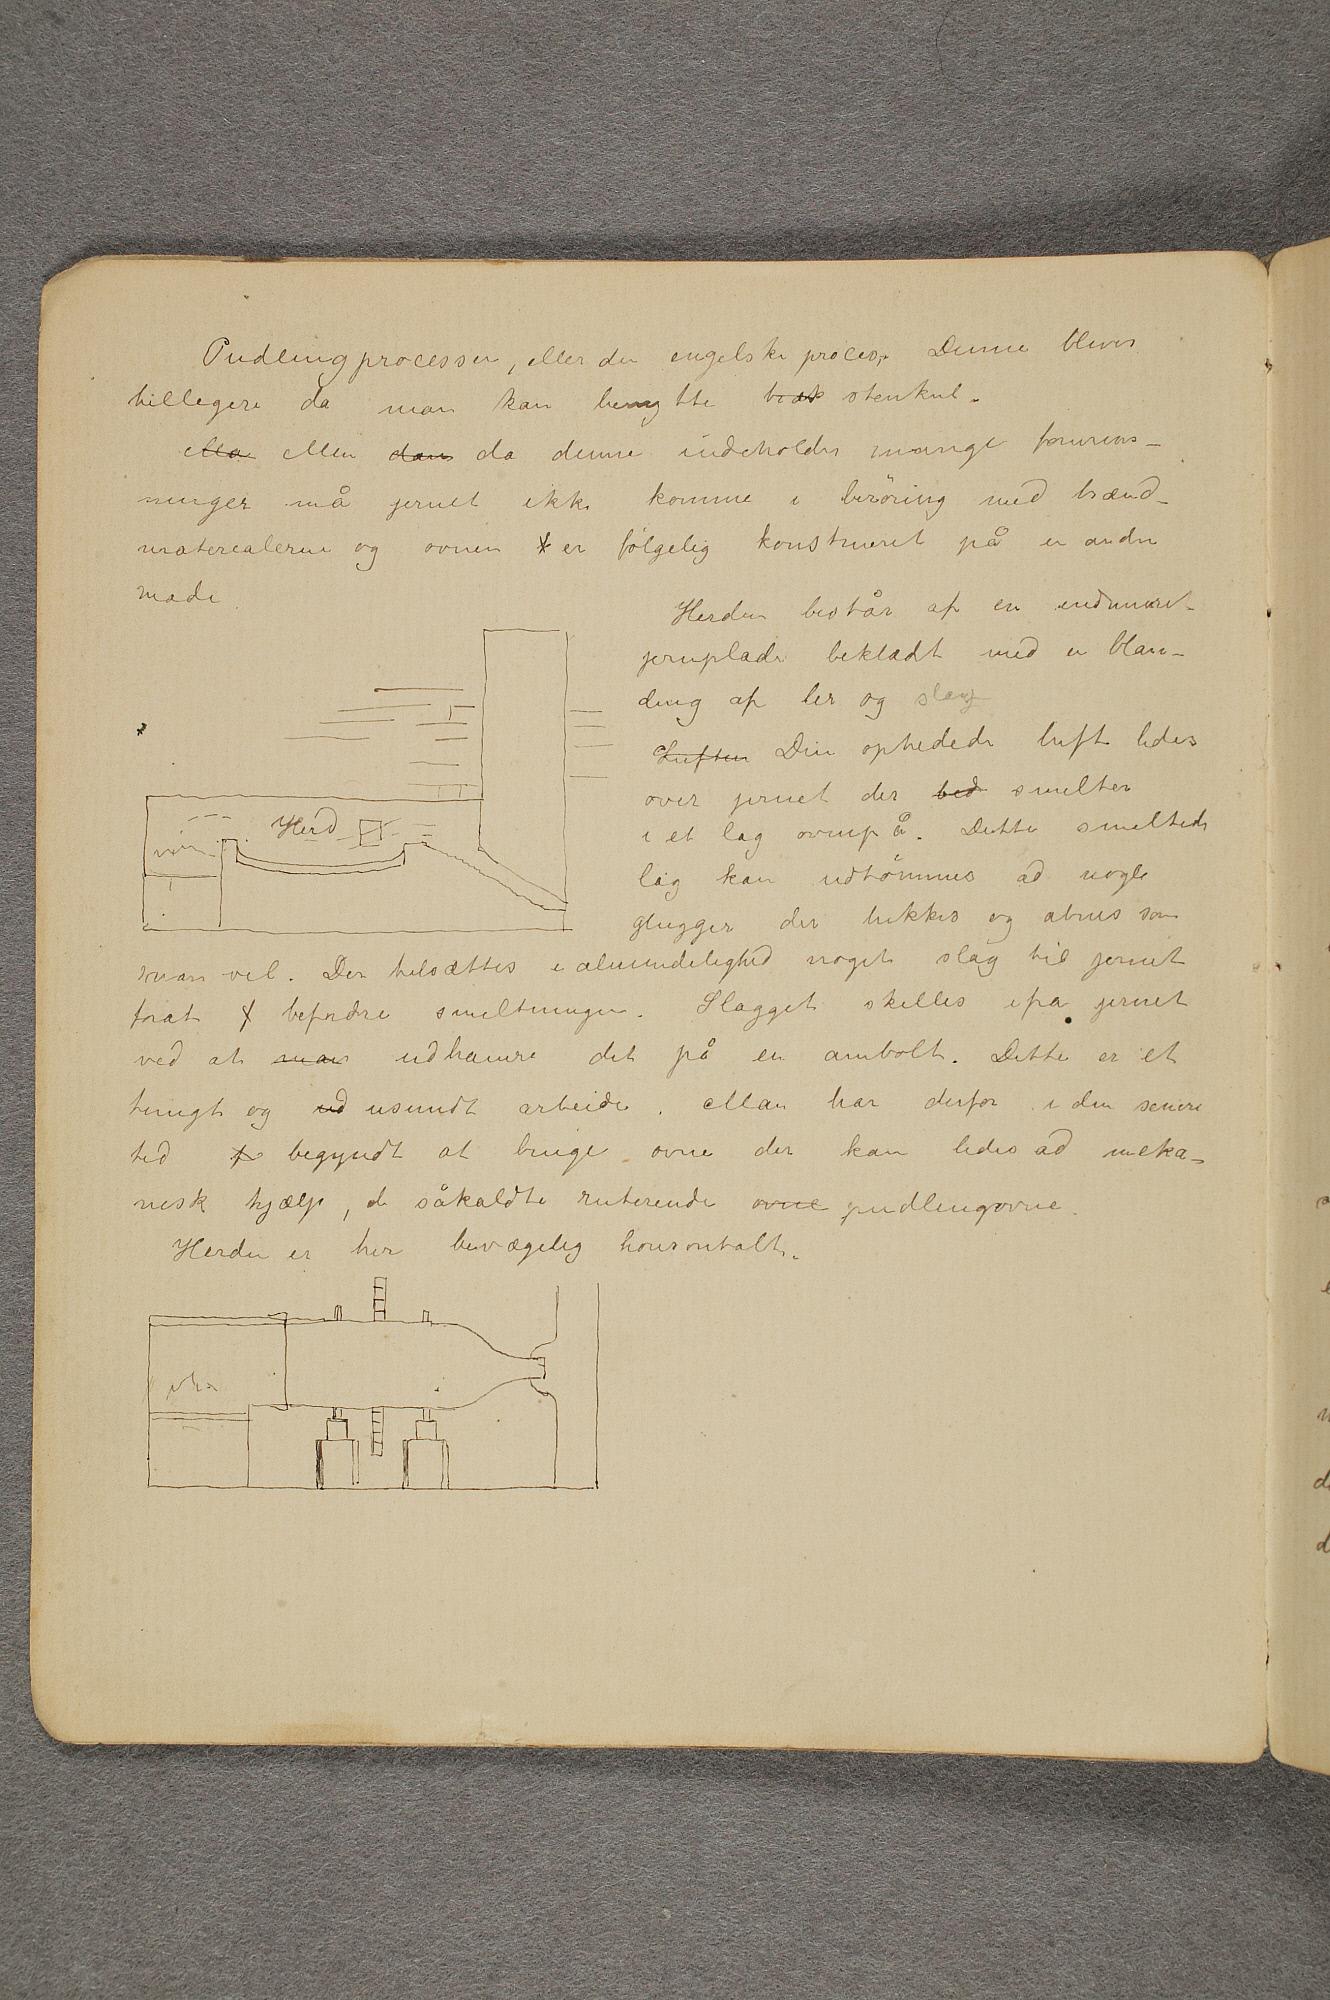 Pudlingprocessen, eller den engelske proces. Denne bliver
billegere da man kan benytte stenkul.
Men da denne indeholder mange forurens-
ninger må jernet ikke komme i berøring med brænd-
materealerne og ovnen er følgelig konstrueret på en anden
made
Herden består af en indmuret
jernplade beklædt med en blan-
ding af ler og slagg
Herd
Luften Den ophedede luft ledes
over jernet der smelter
i et lag ovnpå. Dette smeltede
lag kan udtømmes ad nogle
glugger der lukkes og abnes som
man vil. Der tilsættes i almindelighed noget slag til jernet
forat befordre smeltningen. Slagget skilles ifra jernet
ved at man udhamre det på en ambolt. Dette er et
tungt og ud usundt arbeide. Man har derfor i den senere
tid begyndt at bruge ovne der kan ledes ad meka-
nisk hjælp, de såkaldte roterende ovne pudlingovne.
Herden er her bevægelig horisontalt.